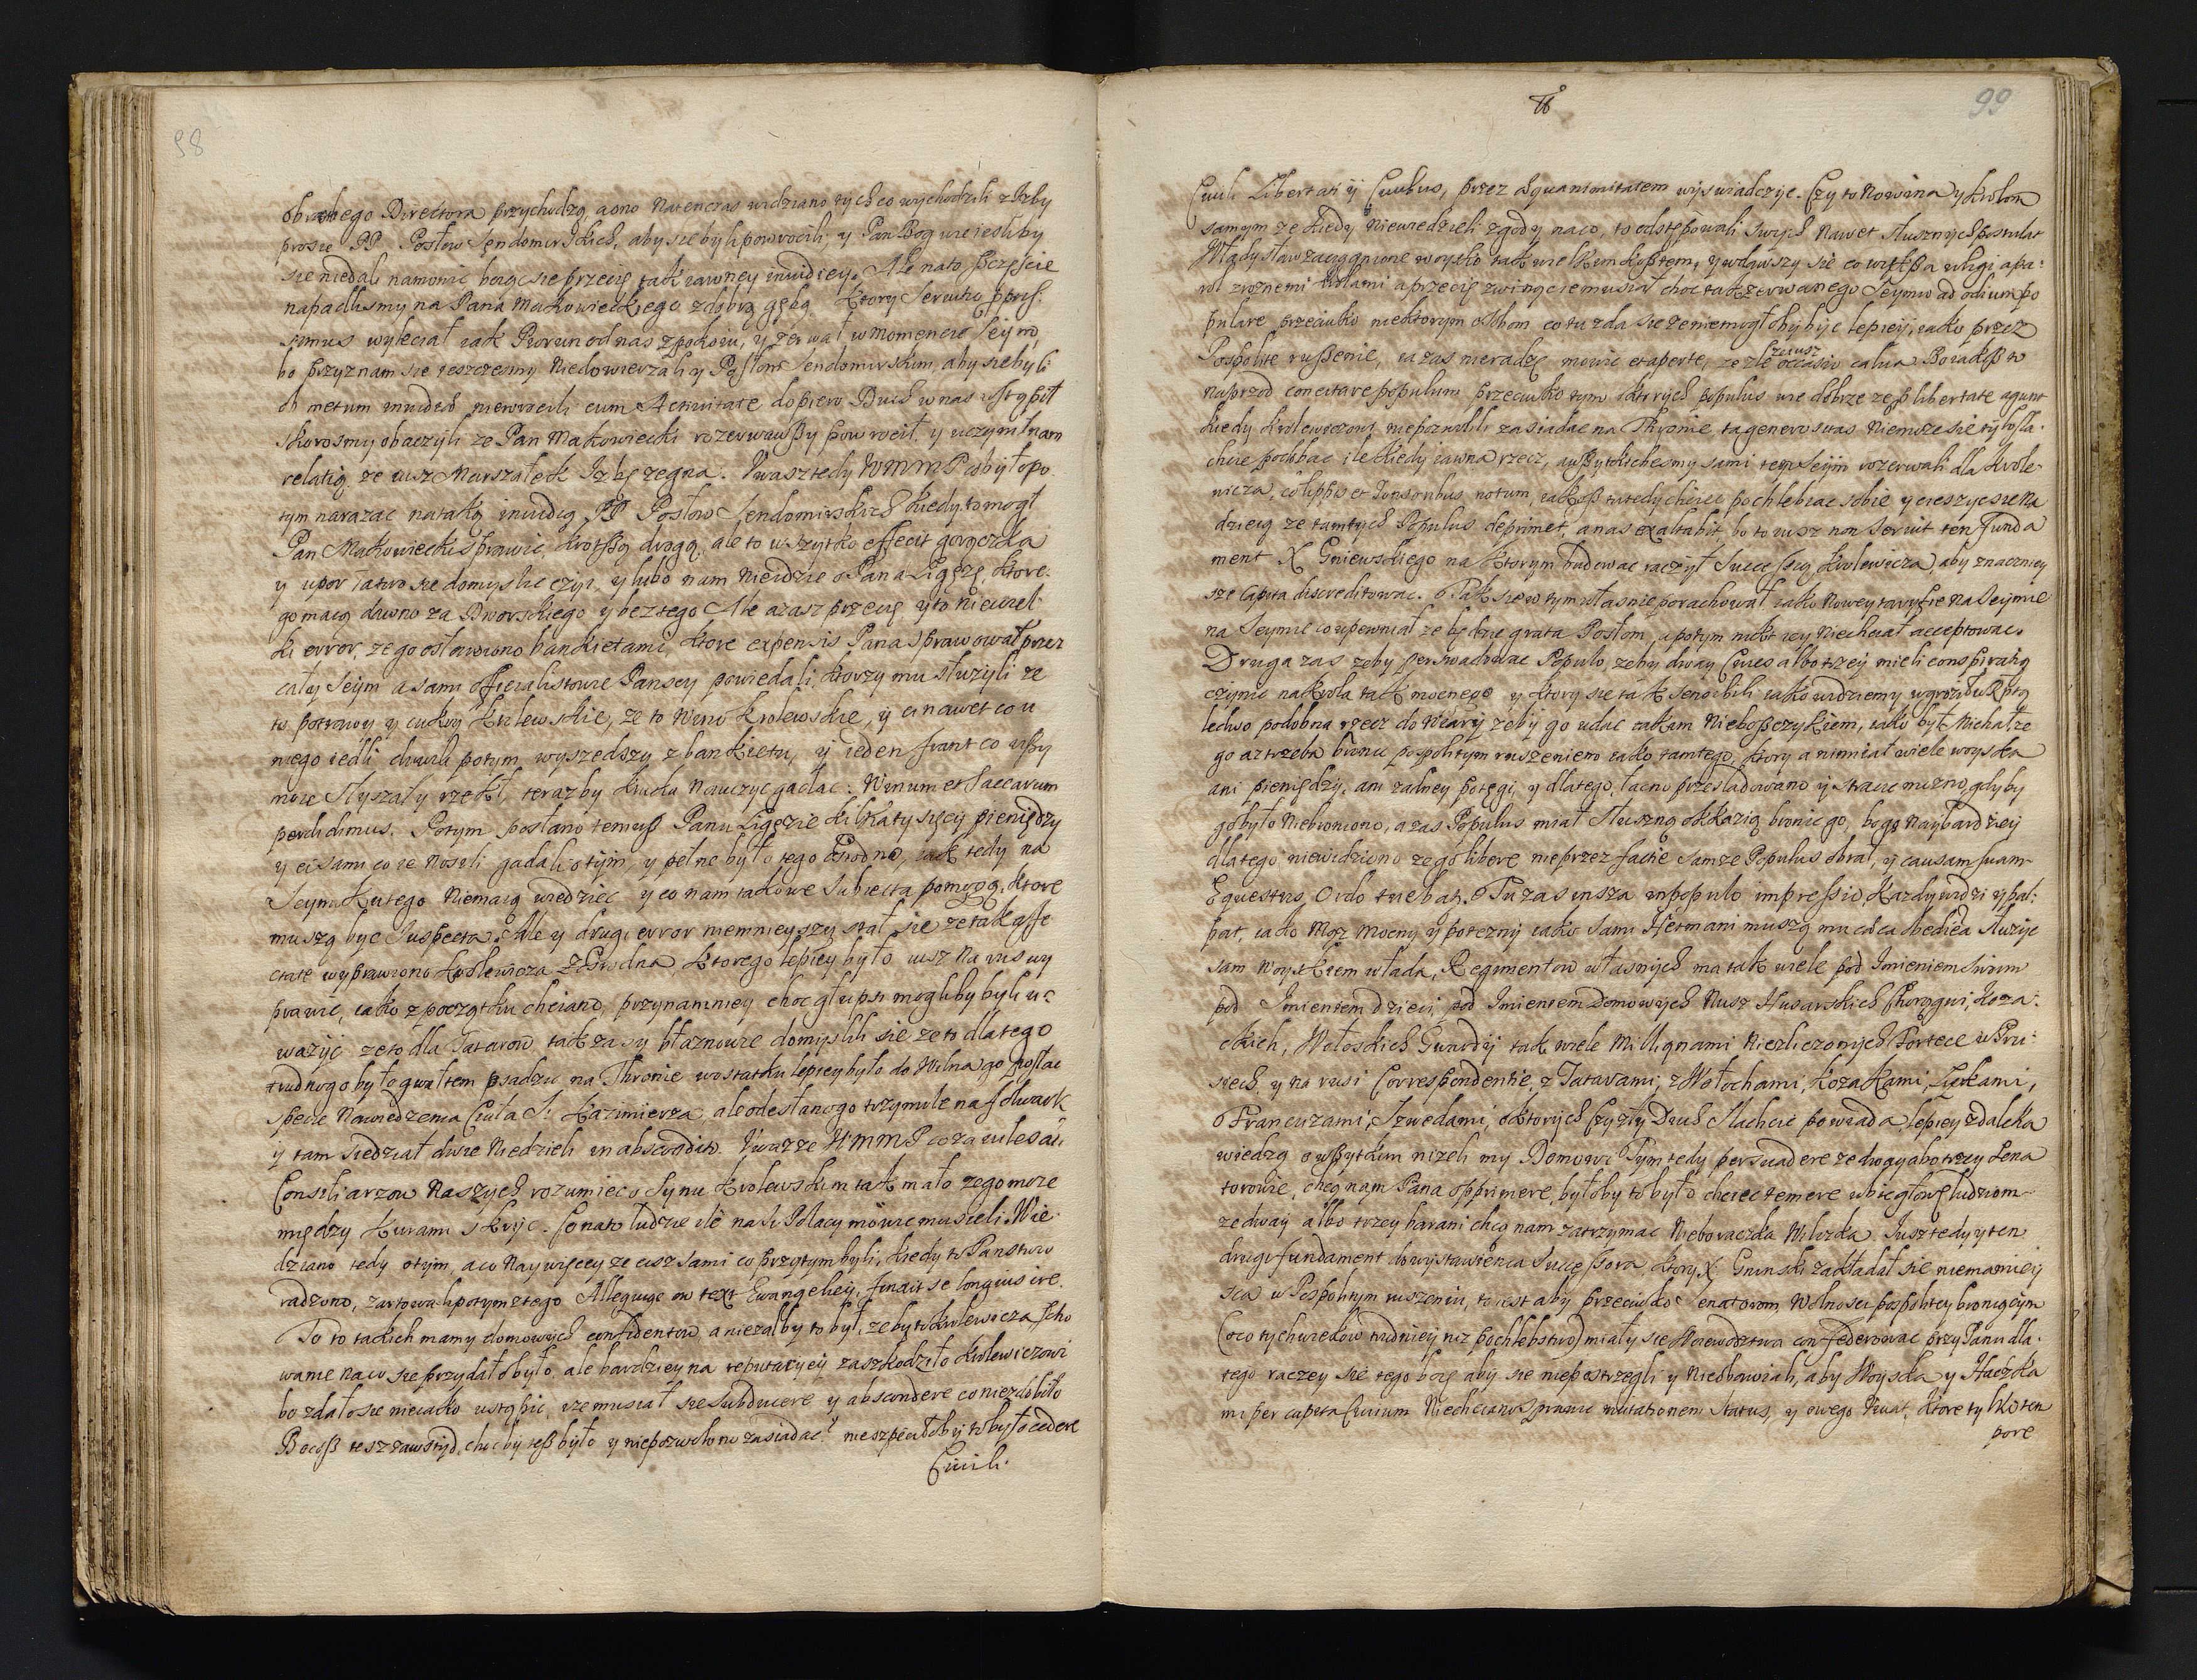 98
obrałego Directora przychodzą, aono natenczas widziano tych co wychodzili z Izby
prosic PP. Posłow Sendomirskich, aby sie byli powrocili, y Pan Bog wie iesliby
sie niedali namowic boiąc sie przecię tak iawney inuidiey. Ale nato szczęscie
napadlismy na Pana Makowieckiego z dobrą gębą. Ktory
simus wyleciał iak Piorun od nas z pokoiu, y zerwał w momencie Seijm,
bo przyznam sie ieszczesmy niedowierzali y Posłom Sendomirskim, aby sie byli
ob metum inuidiæ niewrocili cum Actiuitate dopiero Duch w nas wstąpił
skorosmy obaczyli ze Pan Makowiecki rozerwawszy powrocił, y uczynił nam
relatią ze iusz Marszałek Izbę zegna. Uwasz tedy WMMP co było po
tym narazac nataką inuidią PP Posłow Sendomirskich kiedy to mogł
Pan Makowiecki sprawic, krotszą drogą, ale to wszytko effecit gorączka
y upor łatwo sie domyslic czyi, y lubo nam nieidzie o Pana Ligęzę, ktore-
go maią dawno za Dworskiego y beztego Ale azasz przecię y to niewiel-
ki error, ze go osławiono bankietami, ktore expensis Pana sprawował przez
cały Seijm a sami officialistowie Panscy powiedali ktorzy mu słuzyli ze
to potrawy y cukry Krolewskie, ze to Wino Krolewskie, y ci nawet co u
niego iedli drwili potym wyszedszy z bankietu, y ieden frant co uszy
moie słyszały rzekł, teraz by kruku nauczyc gadac: Vinum et Saccarum
perdidimus. Potym posłano temusz Panu Ligęzie kilka tysięcy pieniędzy
y ci sami co ie niesli gadali o tym, y pełne było tego Grodno, iak tedy na
Seymikutego niemaią wiedziec y co nam takowe Subiecta pomogą, ktore
muszą byc Suspecta. Ale y drugi error niemnieyszy stał sie ze tak affe
ctate wyprawiono Krolewicza z Grodna, ktorego lepiey było iusz na ius wy
prawic, iako z początku chciano, przynamniey choc głupsi mogliby byli u-
wazyc zeto dla Tatarow tak zasy błaznowie domyslili sie ze to dlatego
trudnogo było gwałtem posadzic na Thronie wostatku lepiey było do Wilna go posłac
specie nawiedzenia Ciała S. Kazimierza, ale odesłanogo trzy mile na folwark
y tam siedział dwie niedzieli in abscondito. Uwazze WMMP coza
Consiliarzow naszych rozumiec o Synu Krolewskim tak mało zego moze
między kurami skryc. Co nato ludzie ile nasi Polacy mowic musieli. Wie-
dziano tedy otym, aco naywięcey ze cisz sami co przytym byli, kiedy to Panstwo
radzono, zartowali potym ztego Alleguiąc on text Ewangeliey, finxit se longius ire.
To to takich mamy domowych confidentow, a niezalby to był, zeby to Krolewicza scho
wanie naco sie przydało było, ale bardziey na reputacyey zaszkodziło Krolewiczowi
bo zdało sie nieiako ustąpic, ize musiał sie subducere y abscondere coniezdobiło
Bocosz tesz zawstyd, chocby tesz było y niepozwolono zasiadac? nieszpeciłoby to było cedere
Ciuili.
99
Ciuili Libertati y Ciuibus, przez æquanimitatem wyswiadczyc. Czy to nowina y Krolom
samym ze kiedy niewiedzieli zgody naco, to odstępowali swych nawet słusznych postulat
Władysław zaciągnione woysko tak wielkim kosztem, y wdawszy sie co więtsza wligi, apa-
rat z roznemi Krolami a przecię zwinąc ie musiał choc tak zerwanego Seymu ad odium po
pulare przeciwko niektorym osobom co tu zda sie ze niemogłohy byc lepiey, iako przez
Pospolite ruszenie, ia zas nieradzę mowię et aperte, ze zle iusz occasio calua Bo iakosz to
naprzod concitare populum przeciwko tym o ktorych populus wie dobrze ze p libertate agunt
kiedy Krolewiczowi niepozwolili zasiadac na Thronie, ta generositas niemoze sie tylo sla-
chcie podobac ile kiedy iawna rzecz, a wszytkichesmy sami ten Seijm rozerwali dla Krole-
wicza, co lippis et Tonsoribus notum, iakosz tu tedy chciec pochlebiac sobie y cieszyc sie na
dzieią ze tamtych Populus deprimet, a nas exaltabit bo to iusz non seruit ten Funda
ment X Gniewskiego na ktorym budowac raczył Successią Krolewicza, aby znacznie
sze Capita discreditowac. Tak sie w tym własnie porachował iako nowey tarysie na Seymie
na Seymie co upewniał ze będzie grata Posłom, a potym nikt iey niechciał acceptowac.
Druga zas zeby perswadowac Populo, zeby dway Ciues albo trzey mieli conspiratią
czynic na Krola tak mocnego y ktory sie tak senobili iako widziemy
ledwo podobna rzecz do wiary zeby go udac iakim nieboszczykiem, iako był Michał ze
go az trzeba bronic pospolitym ruszeniem iako tamtego, ktory ani miał wiele woyska
ani pieniędzy, ani zadney potęgi, y dlatego łacno przesladowano y stracic mozno, gdyby
go było niebroniono, a zas Populus miał słuszną okkazią bronic go, bogo naybardziey
dlatego niewidziono ze go libere nieprzez factie samze Populus obrał, y causam suam
Equestris Ordo tuebat. Tu zas insza in populo impressio. Kazdy widzi y pal-
pat, iako Mąz mocny y potezny iako sami Hetmani muszą mu cæca obedieā słuzyc
sam woyskiem włada, Regimentow własnych ma tak wiele pod Imieniem swoim
pod Imieniem dzieci, pod Imieniem domowych nusz Husarskich Chorągwi, Koza-
ckich, Wołoskich Gwardy tak wiele Millionami niezliczonych Fortece w Pru-
siech y na rusi Correspondentie, z Tatarami, z Wołochami, Kozakami, Turkami,
Francuzami, Szwedami, o ktorych Czy zły Duch slachcie powiada, lepiey zdaleka
wiedzą o wszytkim nizeli my Domowi Tym tedy persuadere ze dwoy abo trzey Sena
torowie, chcą nam Pana opprimere, byłoby to było chciec temere ubic głowę ludziom
ze dway albo trzey barani chcą nam zatrzymac nieboraczka Wilczka. Iusz tedy y ten
drugi fundament do wystawienia Successora, ktory X. Gninski zakładał sie niema miey
sca w Pospolitym ruszeniu, to iest aby przeciwko Senatorom Wolnosci pospolitey broniącym
(oco tych wiekow trudniey niz pochlebstwo) miały sie Woiewodztwa confederowac przy Panu dla-
tego raczey sie tego boię aby sie niepostrzegli y nieobawiali, aby Woyska y Slachta
mi per capita Ciuium niechciano sprawic mutationem status, y owego Uwat. Ktore tylkoten
pore